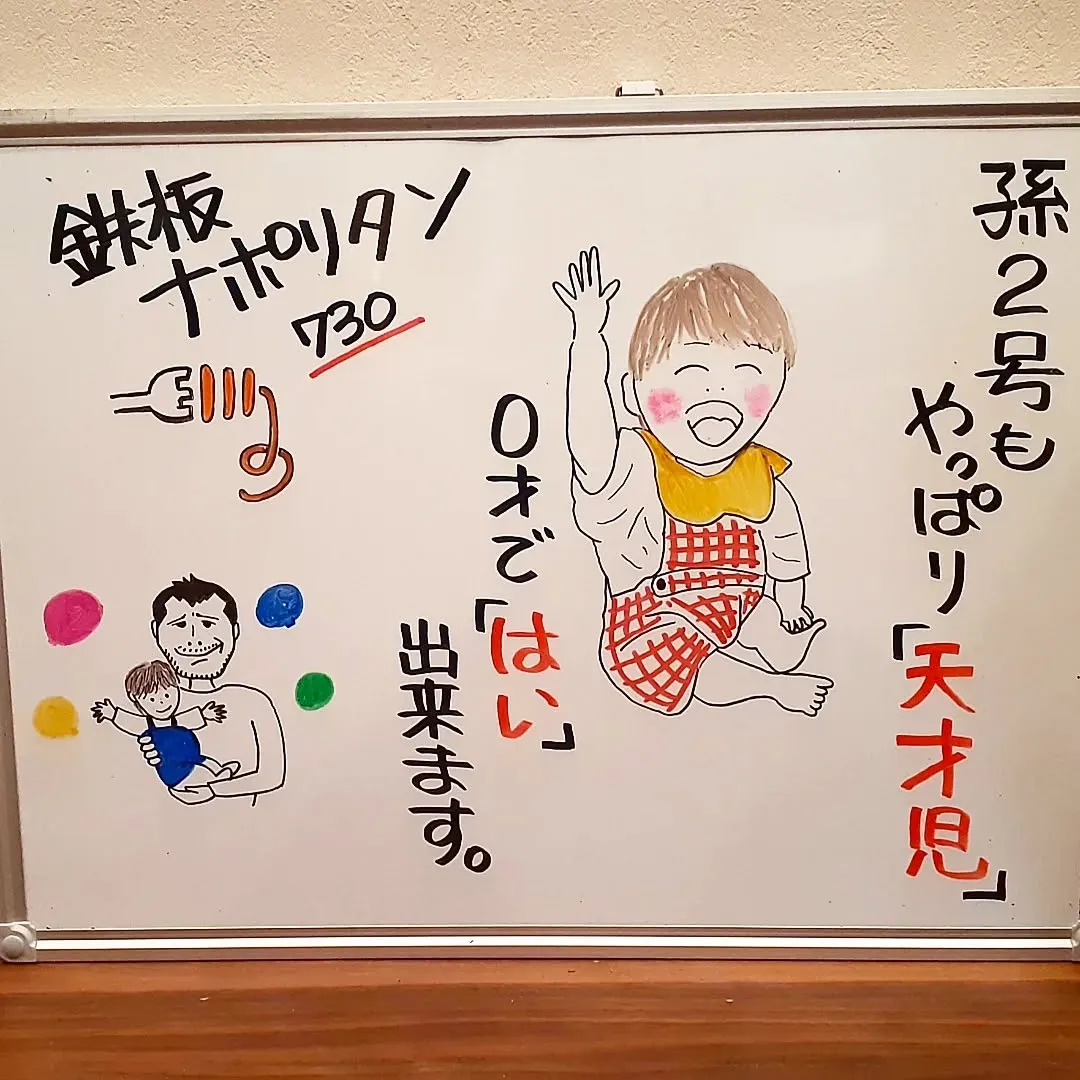 孫2号も
やっぱり「天才児」
0才で「はい」
出来ます。
鉄板
ナポリタン
730